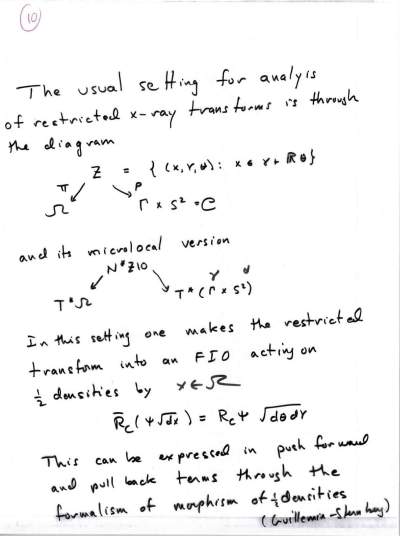 10
The usual setting for analyis
of restricted x-ray transforms is through
the diagram
Z = { (x, γ, θ) : x ∈ γ + ℝθ }
π ρ
Ω Γ × S² = C
and its microlocal version
N*Z\0
γ θ
T*Ω T*(Γ × S²)
In this setting one makes the restricted
transform into an FIO acting on
½ densities by x ∈ Ω
R̄_C (ψ√dx) = R_C ψ √dθdγ
This can be expressed in push forward
and pull back terms through the
formalism of morphism of ½ densities
(Guillemin-Sternberg)